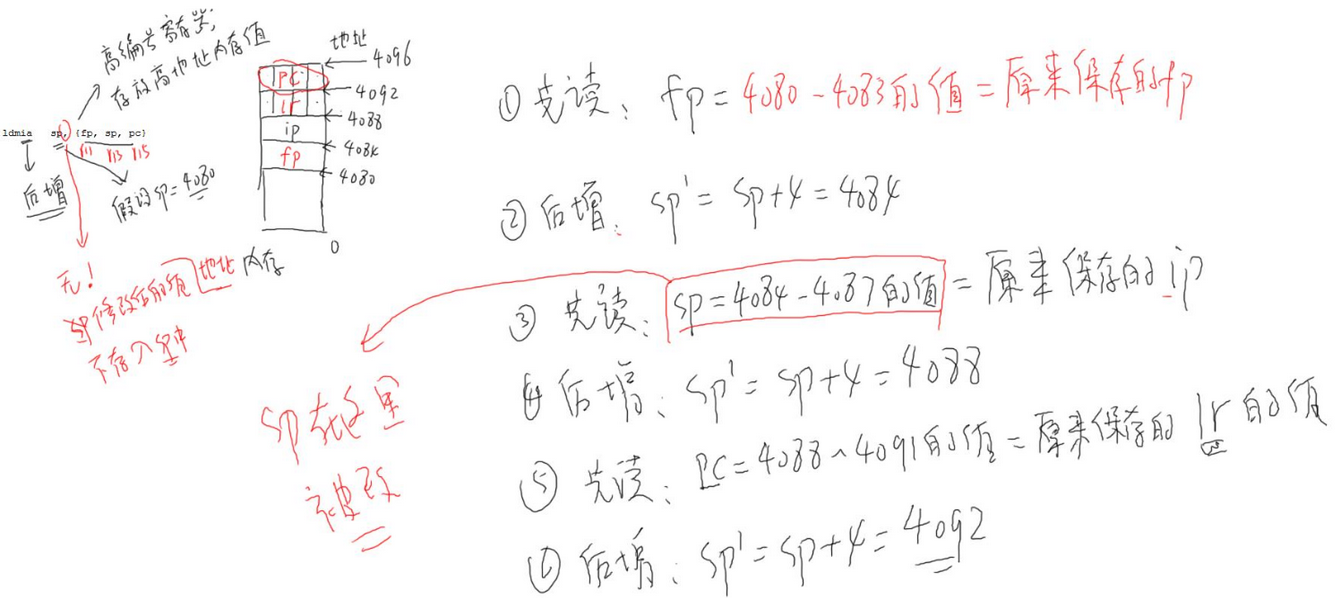 高编号寄存器,
存放高地址内存值
ldmia sp, {fp, sp, pc}
r11 r13 r15
后增
假设sp=4080
无!
sp修改后的值 地址内存
不存入sp中
地址
4096
PC
4092
lr
4088
ip
4084
fp
4080
0
① 先读: fp=4080-4083的值=原来保存的fp
② 后增: sp'=sp+4=4084
③ 先读: sp=4084-4087的值=原来保存的ip
④ 后增: sp'=sp+4=4088
⑤ 先读: PC=4088~4091的值=原来保存的lr的值
⑥ 后增: sp'=sp+4=4092
sp在这里
被改